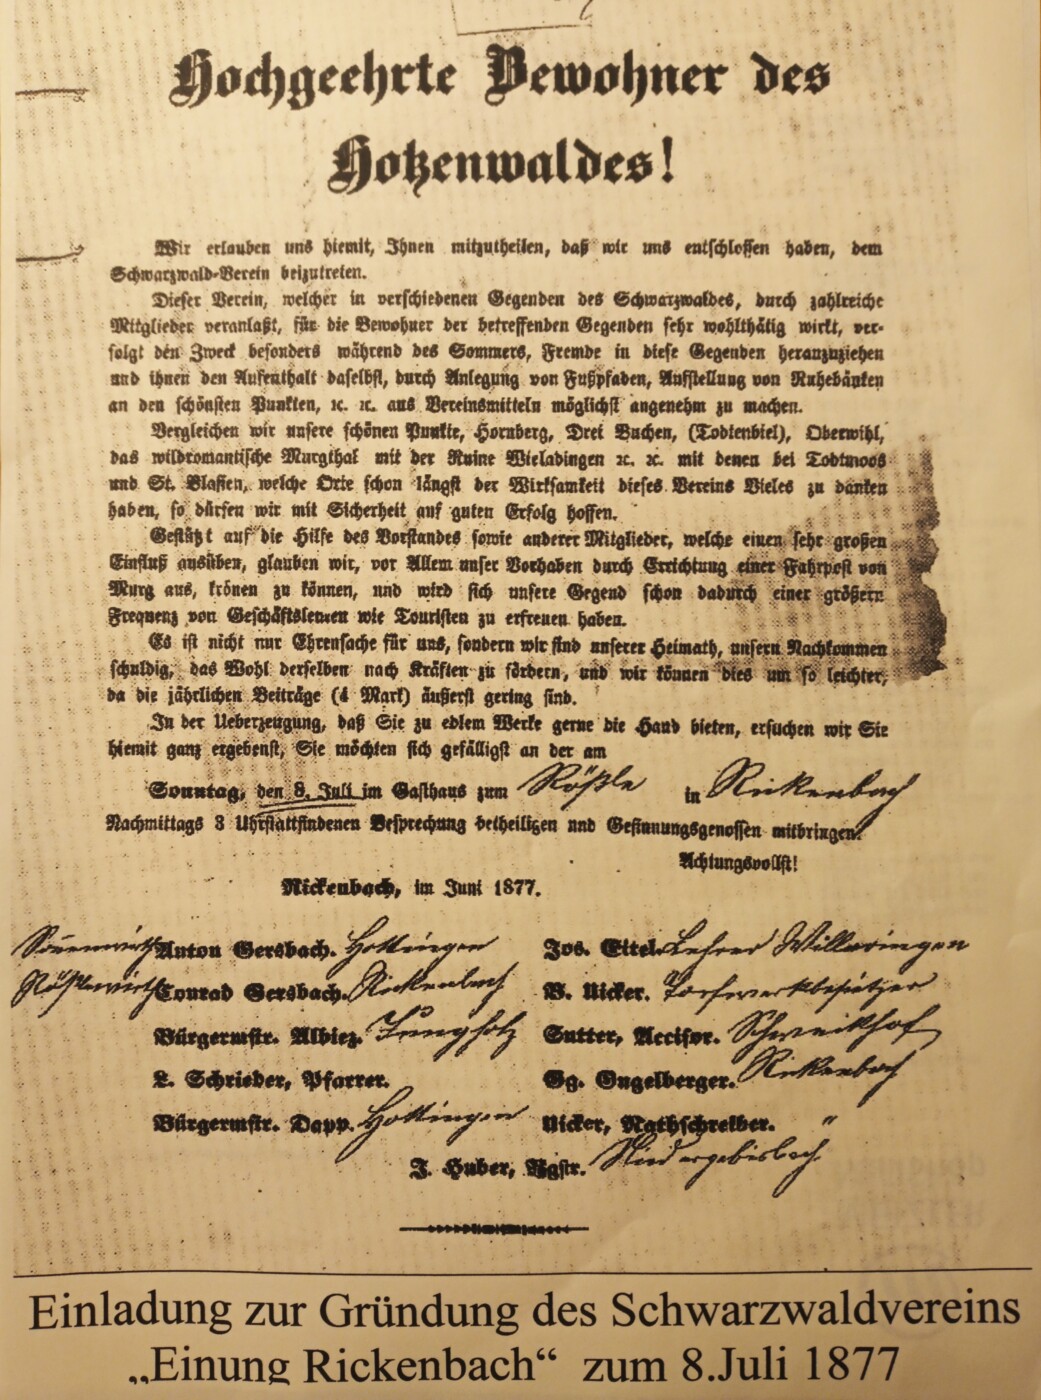 Hochgeehrte Bewohner des
Hotzenwaldes!
Wir erlauben uns hiemit, Ihnen mitzutheilen, daß wir uns entschlossen haben, dem
Schwarzwald-Verein beizutreten.
Dieser Verein, welcher in verschiedenen Gegenden des Schwarzwaldes, durch zahlreiche
Mitglieder veranlaßt, für die Bewohner der betreffenden Gegenden sehr wohlthätig wirkt, ver-
folgt den Zweck besonders während des Sommers, Fremde in diese Gegenden heranzuziehen
und ihnen den Aufenthalt daselbst, durch Anlegung von Fußpfaden, Aufstellung von Ruhebänken
an den schönsten Punkten, ꝛc. ꝛc. aus Vereinsmitteln möglichst angenehm zu machen.
Vergleichen wir unsere schönen Punkte, Hornberg, Drei Buchen, (Todtenbiel), Oberwihl,
das wildromantische Murgthal mit der Ruine Wieladingen ꝛc. ꝛc. mit denen bei Todtmoos
und St. Blasien, welche Orte schon längst der Wirksamkeit dieses Vereins Vieles zu danken
haben, so dürfen wir mit Sicherheit auf guten Erfolg hoffen.
Gestützt auf die Hilfe des Vorstandes sowie anderer Mitglieder, welche einen sehr großen
Einfluß ausüben, glauben wir, vor Allem unser Vorhaben durch Errichtung einer Fahrpost von
Murg aus, krönen zu können, und wird sich unsere Gegend schon dadurch einer größern
Frequenz von Geschäftsleuten wie Touristen zu erfreuen haben.
Es ist nicht nur Ehrensache für uns, sondern wir sind unserer Heimath, unsern Nachkommen
schuldig, das Wohl derselben nach Kräften zu fördern, und wir können dies um so leichter,
da die jährlichen Beiträge (4 Mark) äußerst gering sind.
In der Ueberzeugung, daß Sie zu edlem Werke gerne die Hand bieten, ersuchen wir Sie
hiemit ganz ergebenst, Sie möchten sich gefälligst an der am
Sonntag, den 8. Juli im Gasthaus zum Rößle in Rickenbach
Nachmittags 3 Uhr stattfindenen Besprechung betheiligen und Gesinnungsgenossen mitbringen.
Achtungsvollst!
Rickenbach, im Juni 1877.
Anton Gersbach. Hottingen Jos. Eitel. Lehrer Willaringen
Rößlewirth Conrad Gersbach. Rickenbach B. Uicker. Torfwerkbesitzer
Bürgermstr. Albiez. Jungholz Sutter, Accisor. Schweikhof
L. Schrieder, Pfarrer. Gg. Engelberger. Rickenbach
Bürgermstr. Dapp. Hottingen Uicker, Rathschreiber. "
J. Huber, Bgstr. Niedergebisbach.
Einladung zur Gründung des Schwarzwaldvereins
„Einung Rickenbach“ zum 8.Juli 1877